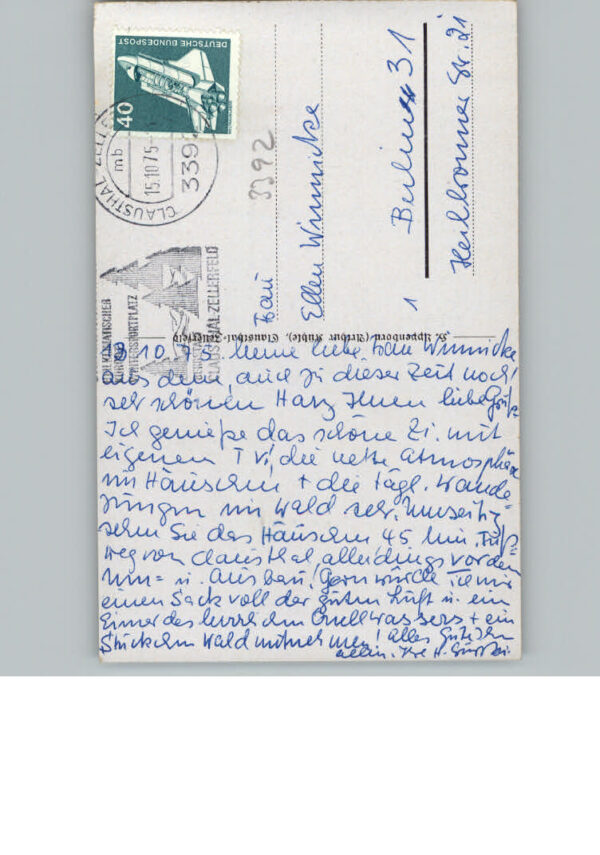 DEUTSCHE BUNDESPOST
40
CLAUSTHAL-ZELLERFELD
mb
15.10.75
339
3392
HEILKLIMATISCHER
KURORT
WINTERSPORTPLATZ
CLAUSTHAL-ZELLERFELD
Frau
Ellen Winnicke
1 Berlin 31
Heilbronner Str. 21
13.10.75. Meine liebe Frau Winnicke
aus dem, auch zu dieser Zeit noch,
sehr schönen Harz Ihnen liebe Grüße
Ich genieße das schöne Zi. mit
eigenem TV, die nette Atmosphäre
im Häuschen + die tägl. Wande-
rungen im Wald sehr. Umseitig
sehen Sie das Häuschen 45 Min. Fuß-
weg von Clausthal, allerdings vor dem
Um- u. Ausbau! Gern würde ich mir
einen Sack voll der guten Luft u. ein
Eimer des herrlichen Quellwassers + ein
Stückchen Wald mitnehmen! Alles Gute Ihnen
allen. Ihre H.